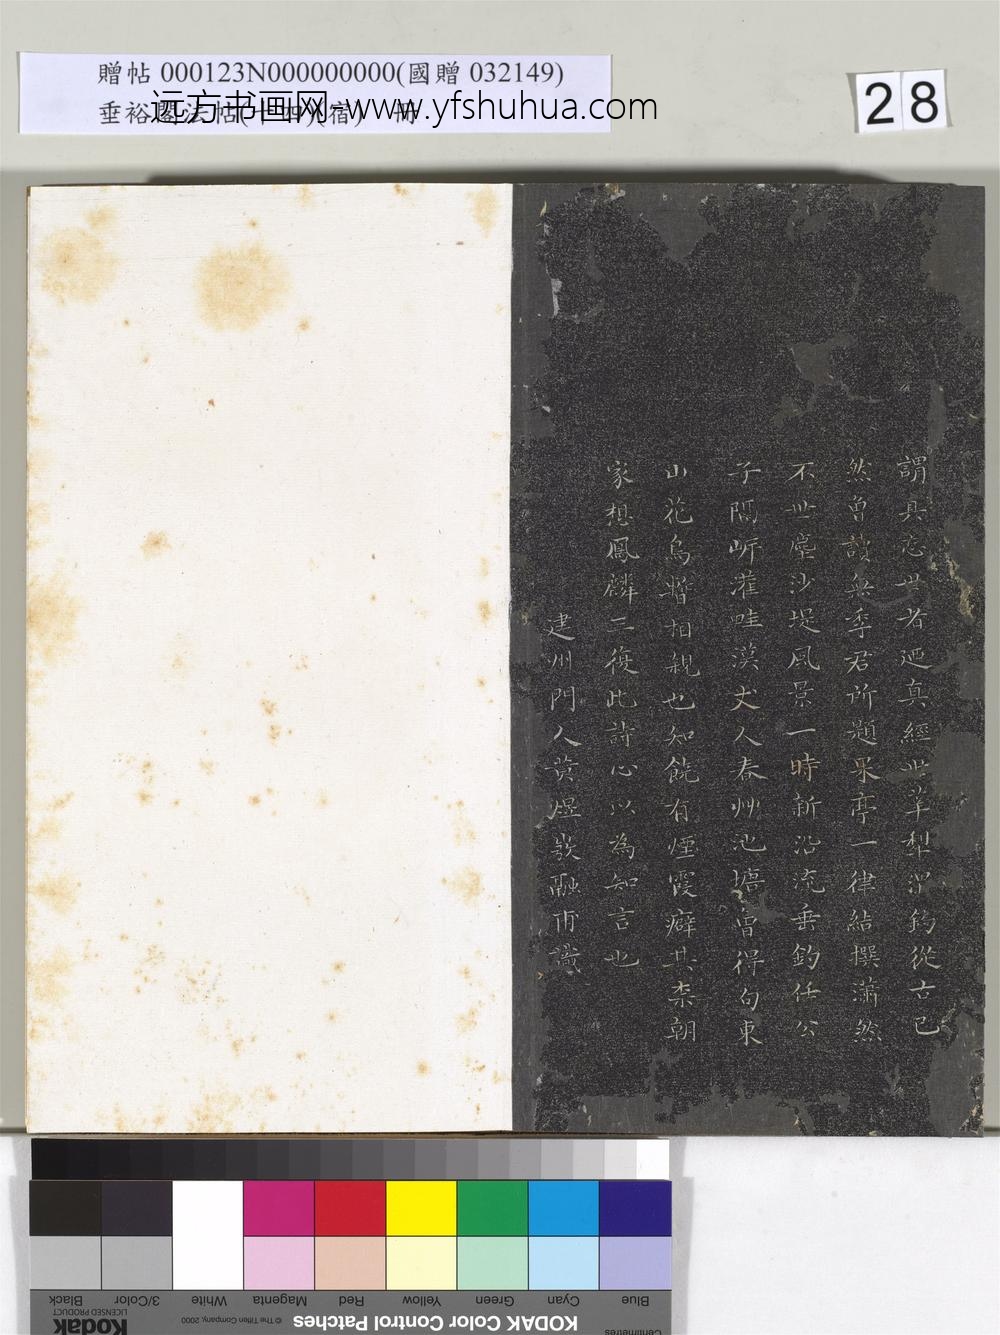 贈帖 000123N000000000(國贈 032149)
垂裕閣法帖(十四)(宿) 冊
远方书画网-www.yfshuhua.com
28
謂具忘世者迺真經世莘犁渭釣從古已
然曾讀無季君所題果亭一律結撰瀟然
不世塵沙堤風景一時新沿流垂釣任公
子隔岍灌畦漢丈人春州池塘曾得句東
山花鳥暫相親也知饒有煙霞癖其柰朝
家想鳳麟三復此詩心以為知言也
建州門人黃煜融甫識
Blue
Cyan
Green
Yellow
Red
Magenta
White
3/Color
Black
Centimetres
KODAK Color Control Patches
© The Tiffen Company, 2000
Kodak
LICENSED PRODUCT